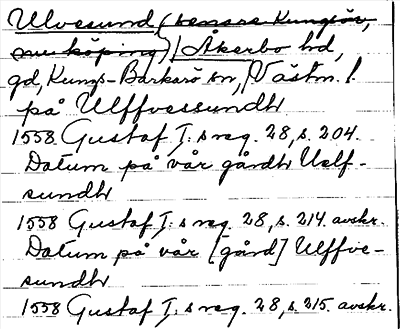 Ulvesund (senare Kungsör,
nu köping) Åkerbo hd,
gd, Kungs-Barkarö sn, Västm. l.
på Ulffvessundh
1558 Gustaf I:s reg. 28, s. 204.
Datum på vår gårdh Ulf-
sundh
1558 Gustaf I:s reg. 28, s. 214. avskr.
Datum på vår [gård] Ulffve-
sundh
1558 Gustaf I:s reg. 28, s. 215. avskr.